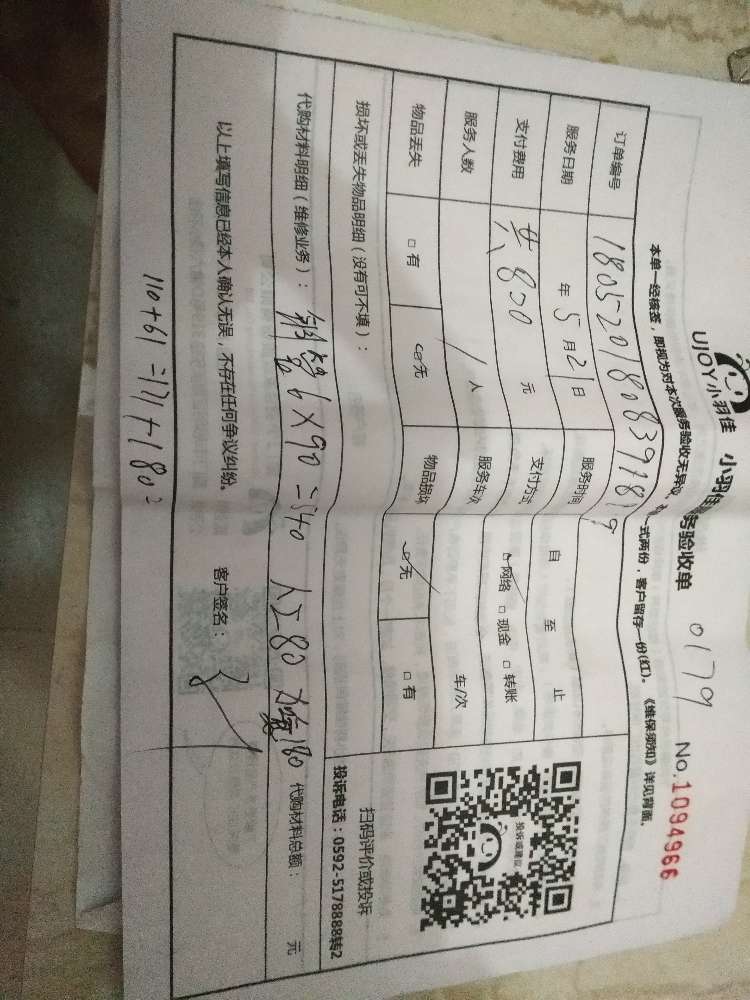 UJOY小羽佳 小羽佳服务验收单 0179 No.1094966
本单一经核签，即视为对本次服务验收无异议，一式两份，客户留存一份(红)。《维保须知》详见背面。
订单编号 1805201808391819
服务日期 年5月21日 服务时间 自 至 止
支付费用 共800 元 支付方式 网络 □现金 □转账
服务人数 1人 服务车次 车/次
物品丢失 □有 无 物品损坏 无 □有
损坏或丢失物品明细（没有可不填）：
扫码评价或投诉
投诉或建议
投诉电话：0592-5178888转2
代购材料明细（维修业务）： 6×90=540 人工80 180 代购材料总额： 元
以上填写信息已经本人确认无误，不存在任何争议纠纷。 客户签名：
110+61=171+180=